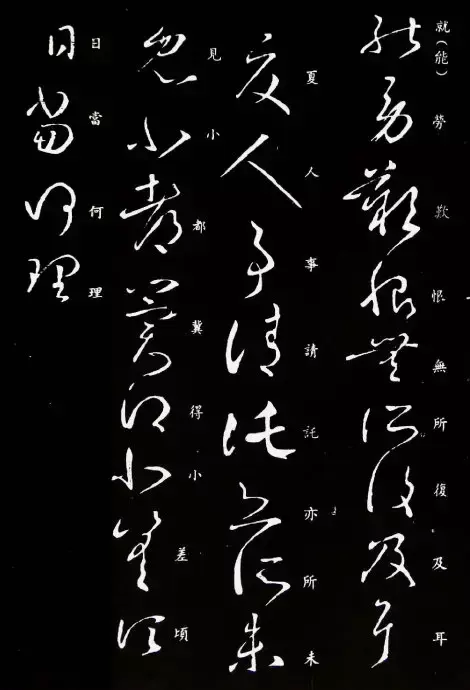 就(能)勞歎恨無所復及耳
夏人事請託亦所未
見小都冀得小差頃
日當何理